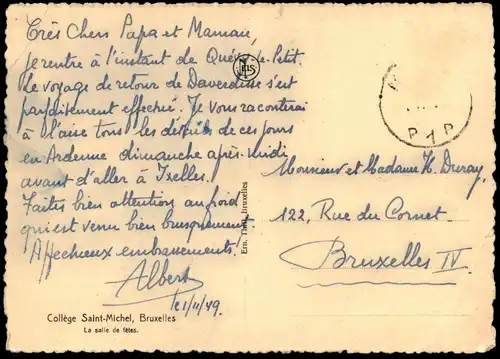 Très Chers Papa et Maman,
je rentre à l'instant de Quévy-le-Petit.
Le voyage de retour de Daverdisse s'est
parfaitement effectué. Je vous raconterai
à l'aise tous les détails de ces jours
en Ardenne dimanche après-midi
avant d'aller à Ixelles.
Faites bien attention au froid
qui est venu bien brusquement
Affectueux embrassements!
Albert
1/11/49.
Collège Saint-Michel, Bruxelles
La salle de fêtes.
Ern. Thill, Bruxelles
P1P
Monsieur et Madame H. Duray,
122, Rue du Cornet
Bruxelles IV.